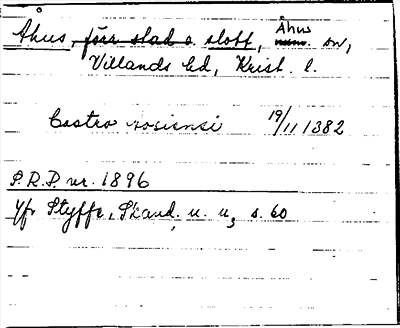 Åhus, förr stad o. slott, Åhus sn,
Villands hd, Krist. l.
Castro Aosiensi 19/11 1382
S.R.P. nr. 1896
Jfr Styffe, Skand. u. u, s. 60